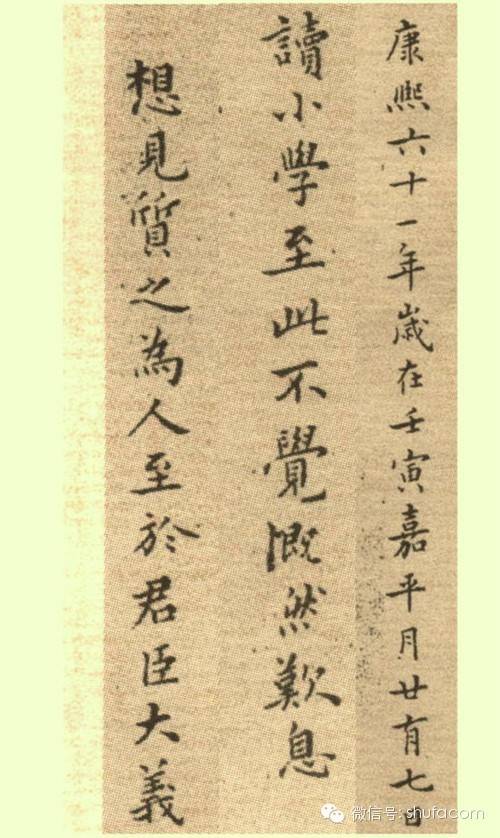 康熙六十一年歲在壬寅嘉平月廿有七日
讀小學至此不覺慨然歎息
想見質之為人至於君臣大義
微信号: shufacom